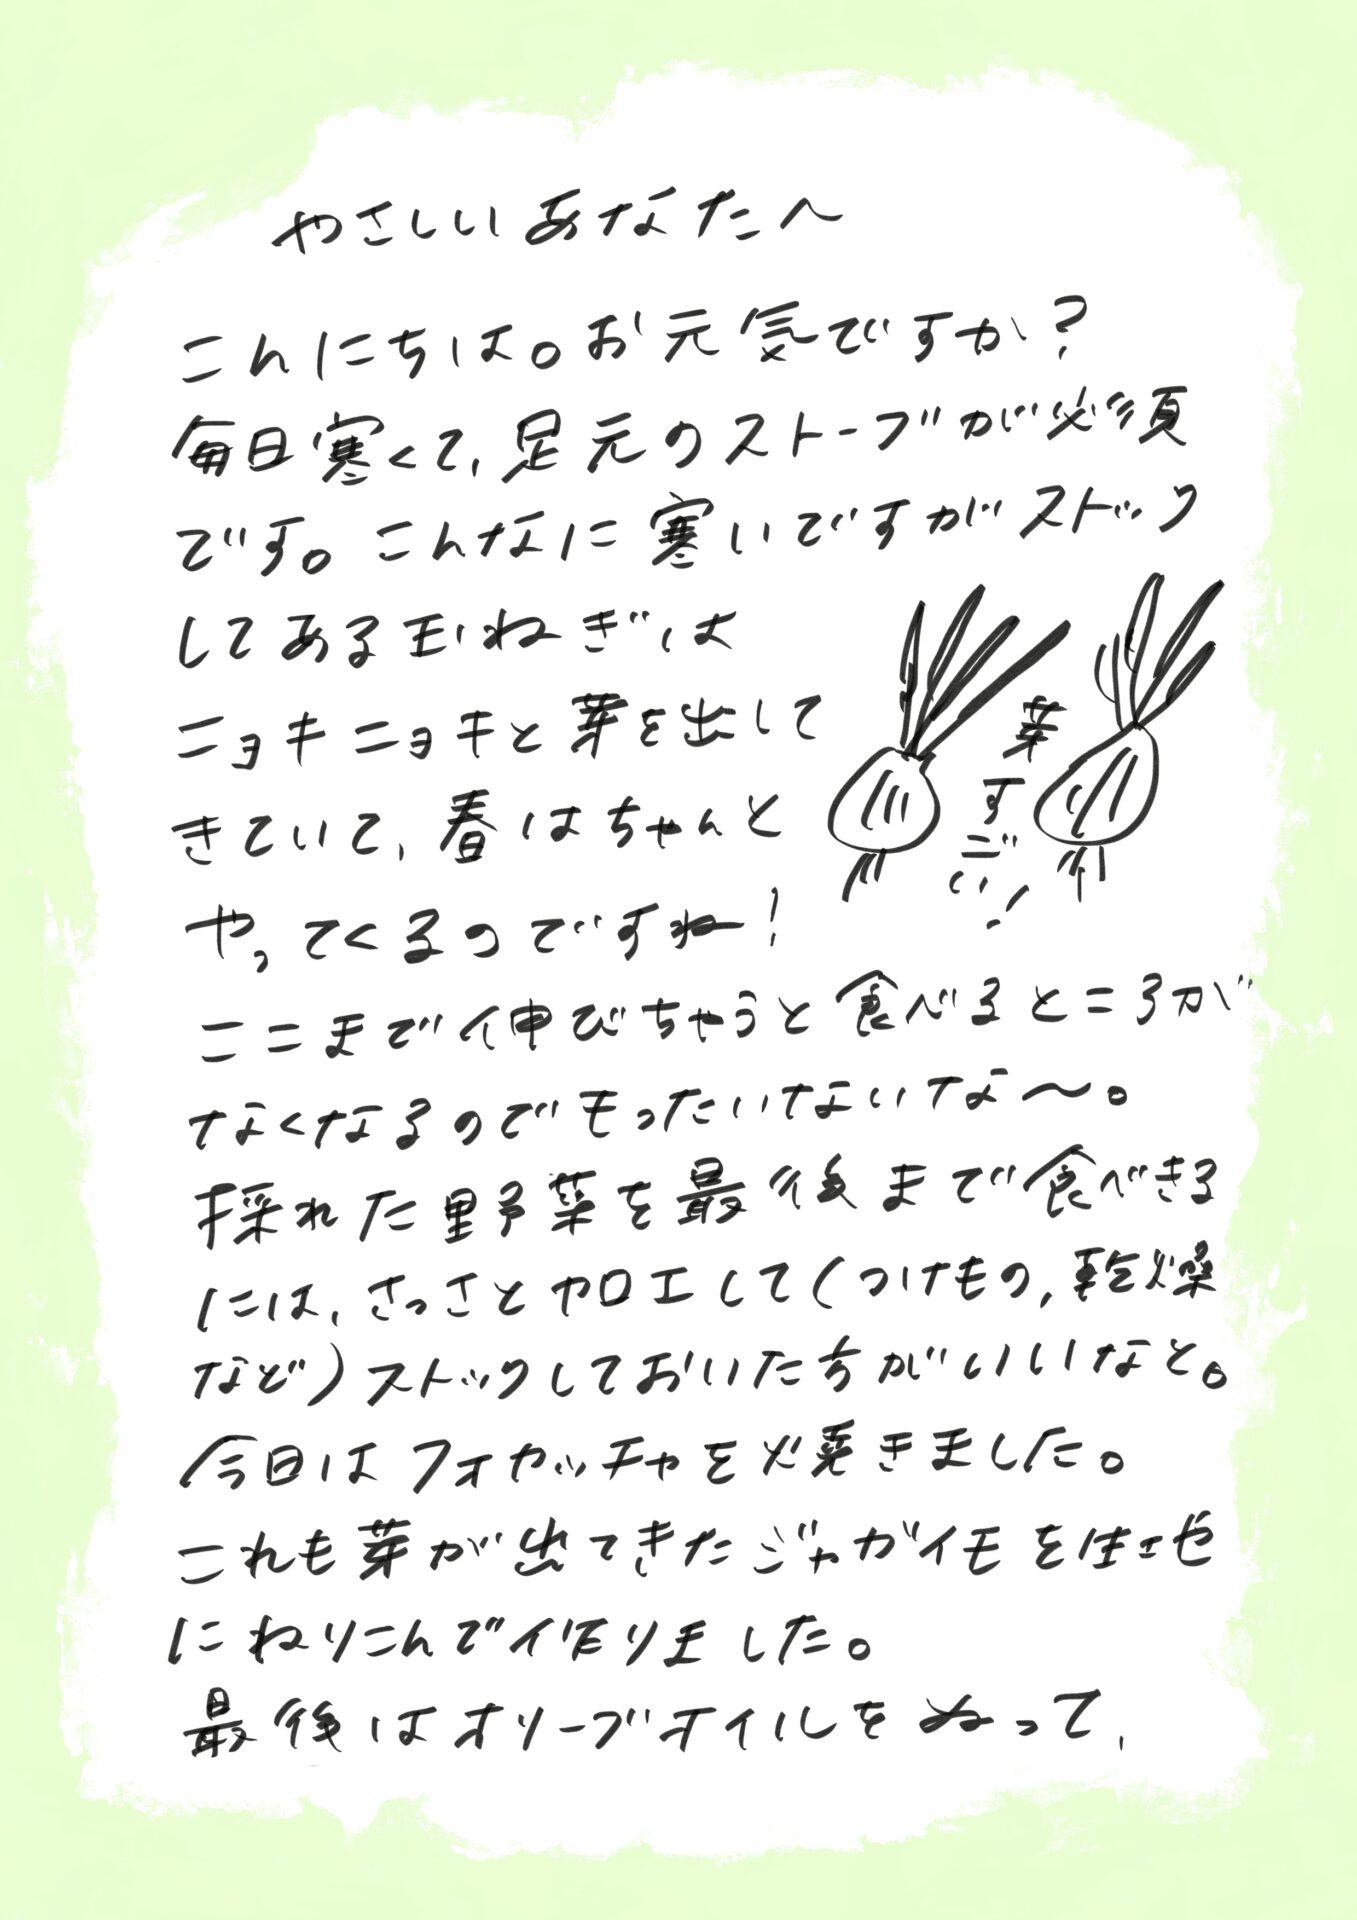 やさしいあなたへ
こんにちは。お元気ですか?
毎日寒くて、足元のストーブが必須
です。こんなに寒いですがストック
してある玉ねぎは
ニョキニョキと芽を出して
きていて、春はちゃんと
やってくるのですね!
芽
すごい!
ここまで伸びちゃうと食べるところが
なくなるのでもったいないな〜。
採れた野菜を最後まで食べきる
には、さっさと加工して(つけもの、乾燥
など)ストックしておいた方がいいなと。
今日はフォカッチャを焼きました。
これも芽が出てきたジャガイモを生地
にねりこんで作りました。
最後はオリーブオイルをぬって、